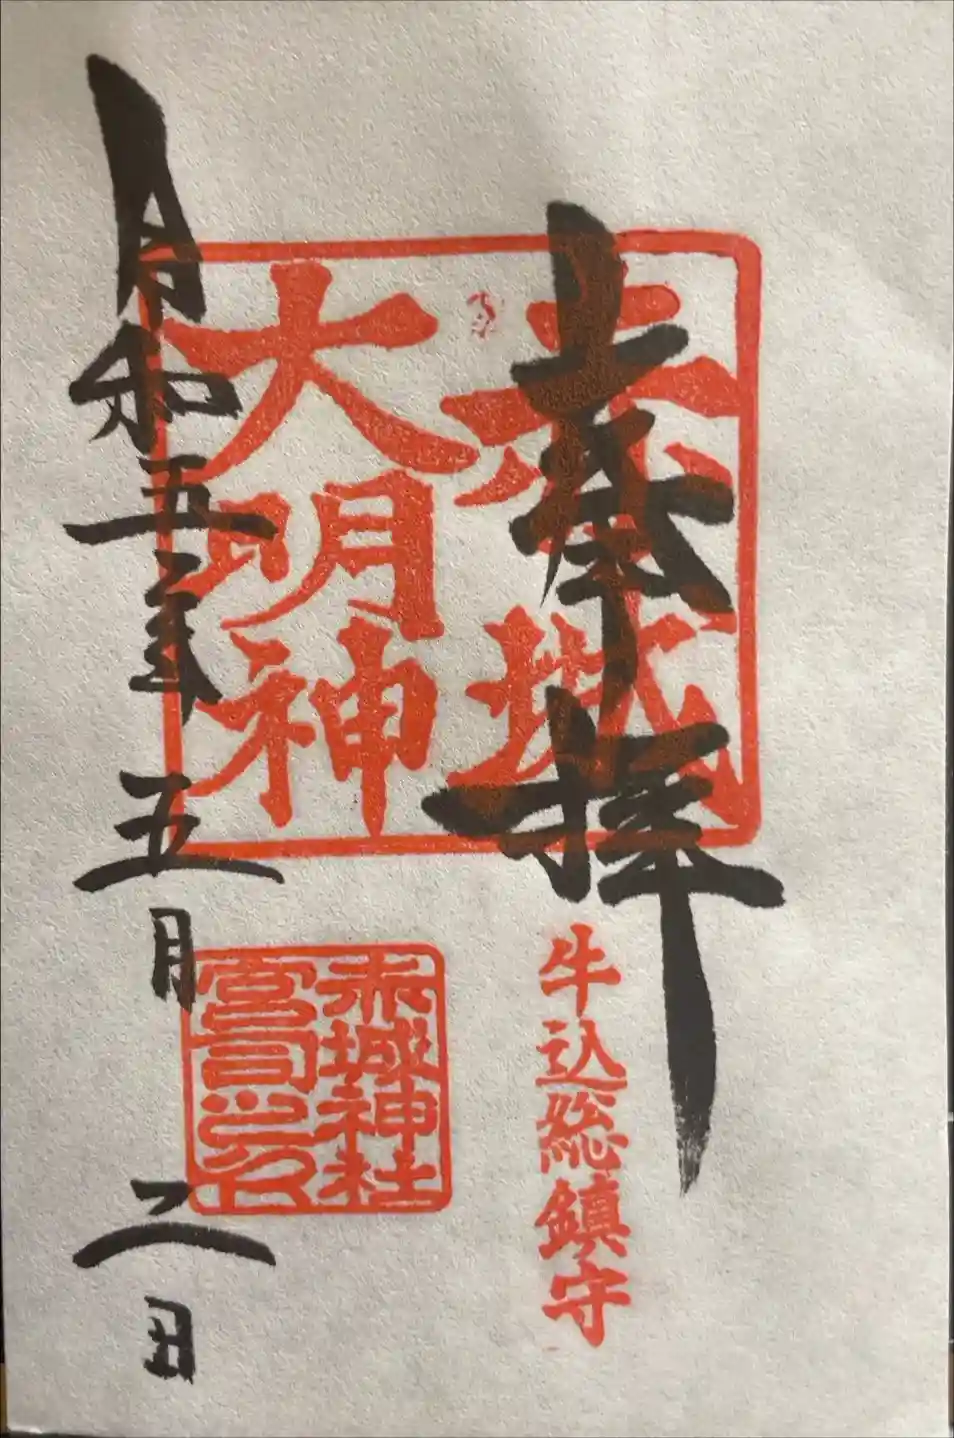 奉拝
赤城
大明神
牛込総鎮守
赤城神社
宮司之印
令和五年五月二日